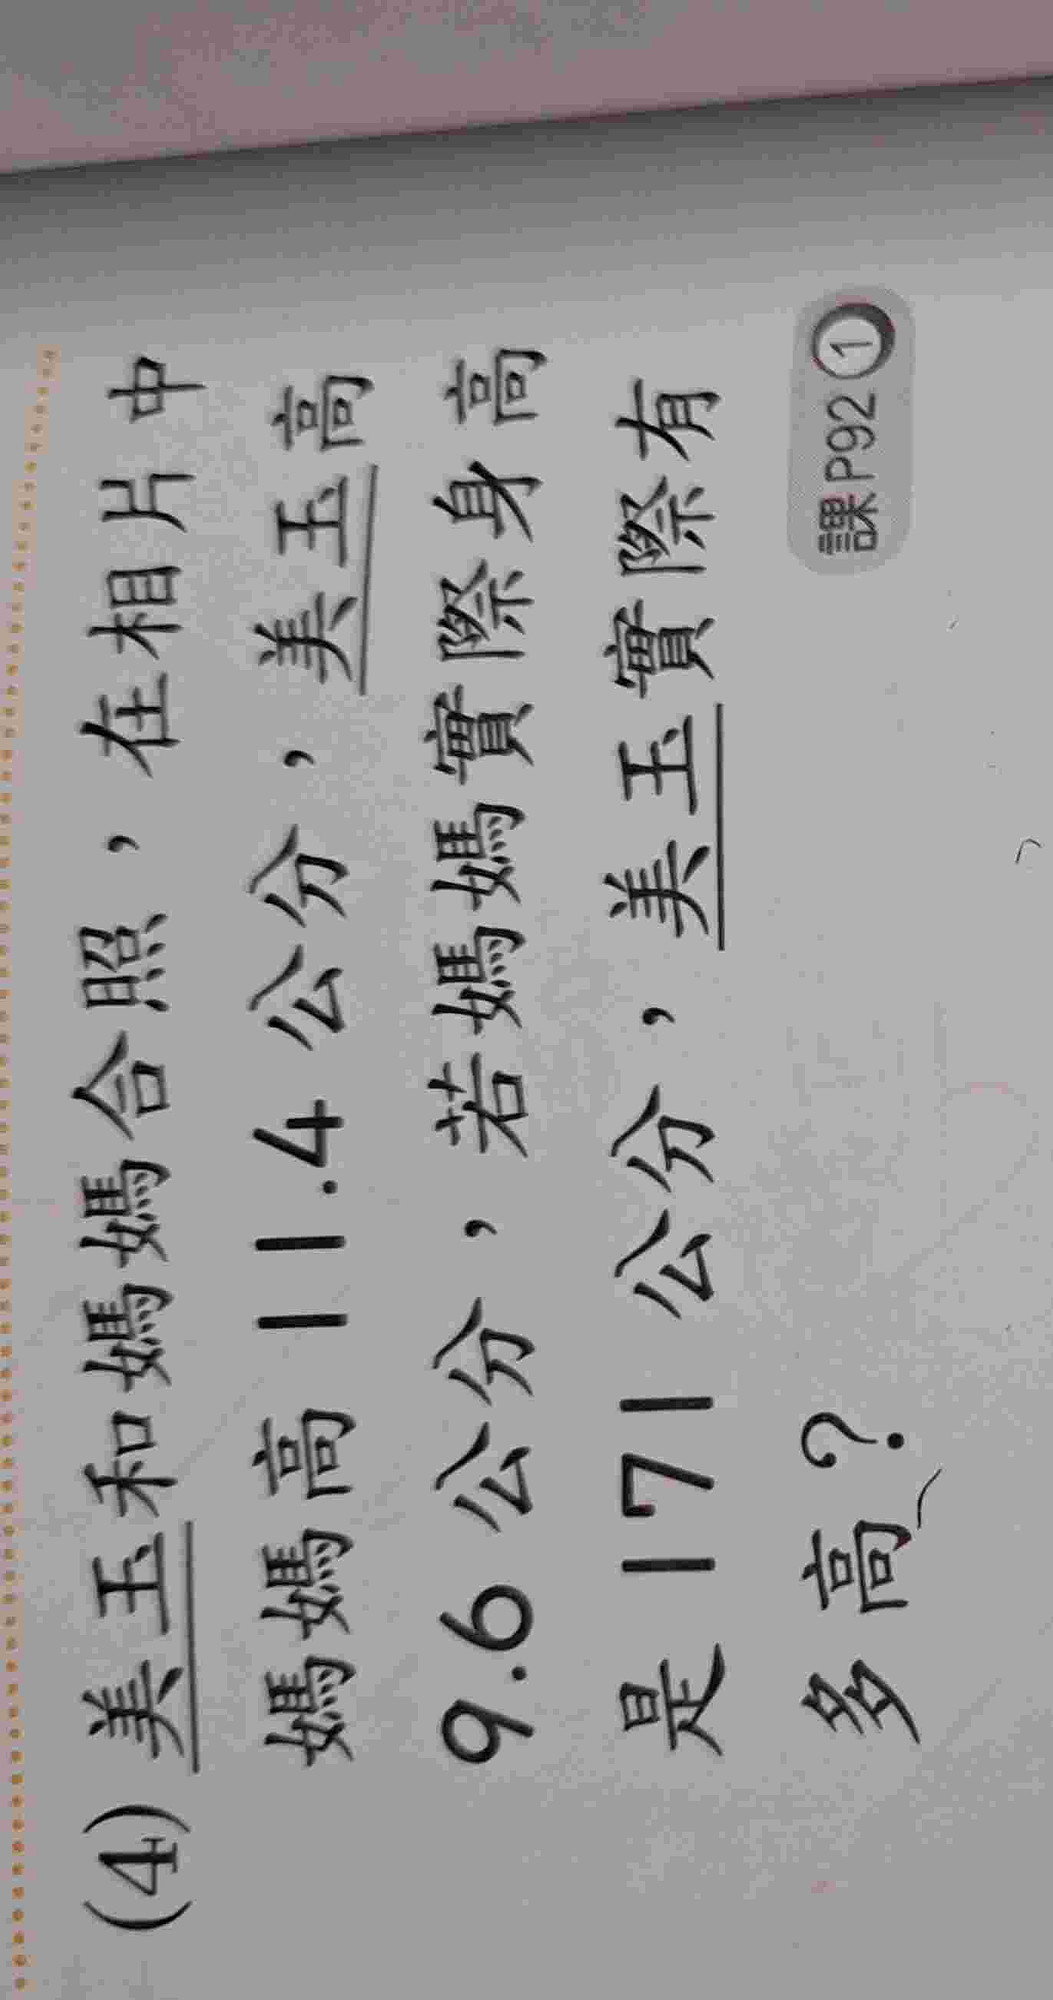 (4) 美玉和媽媽合照，在相片中
媽媽高 11.4 公分，美玉高
9.6 公分，若媽媽實際身高
是 171 公分，美玉實際有
多高？
課P92①